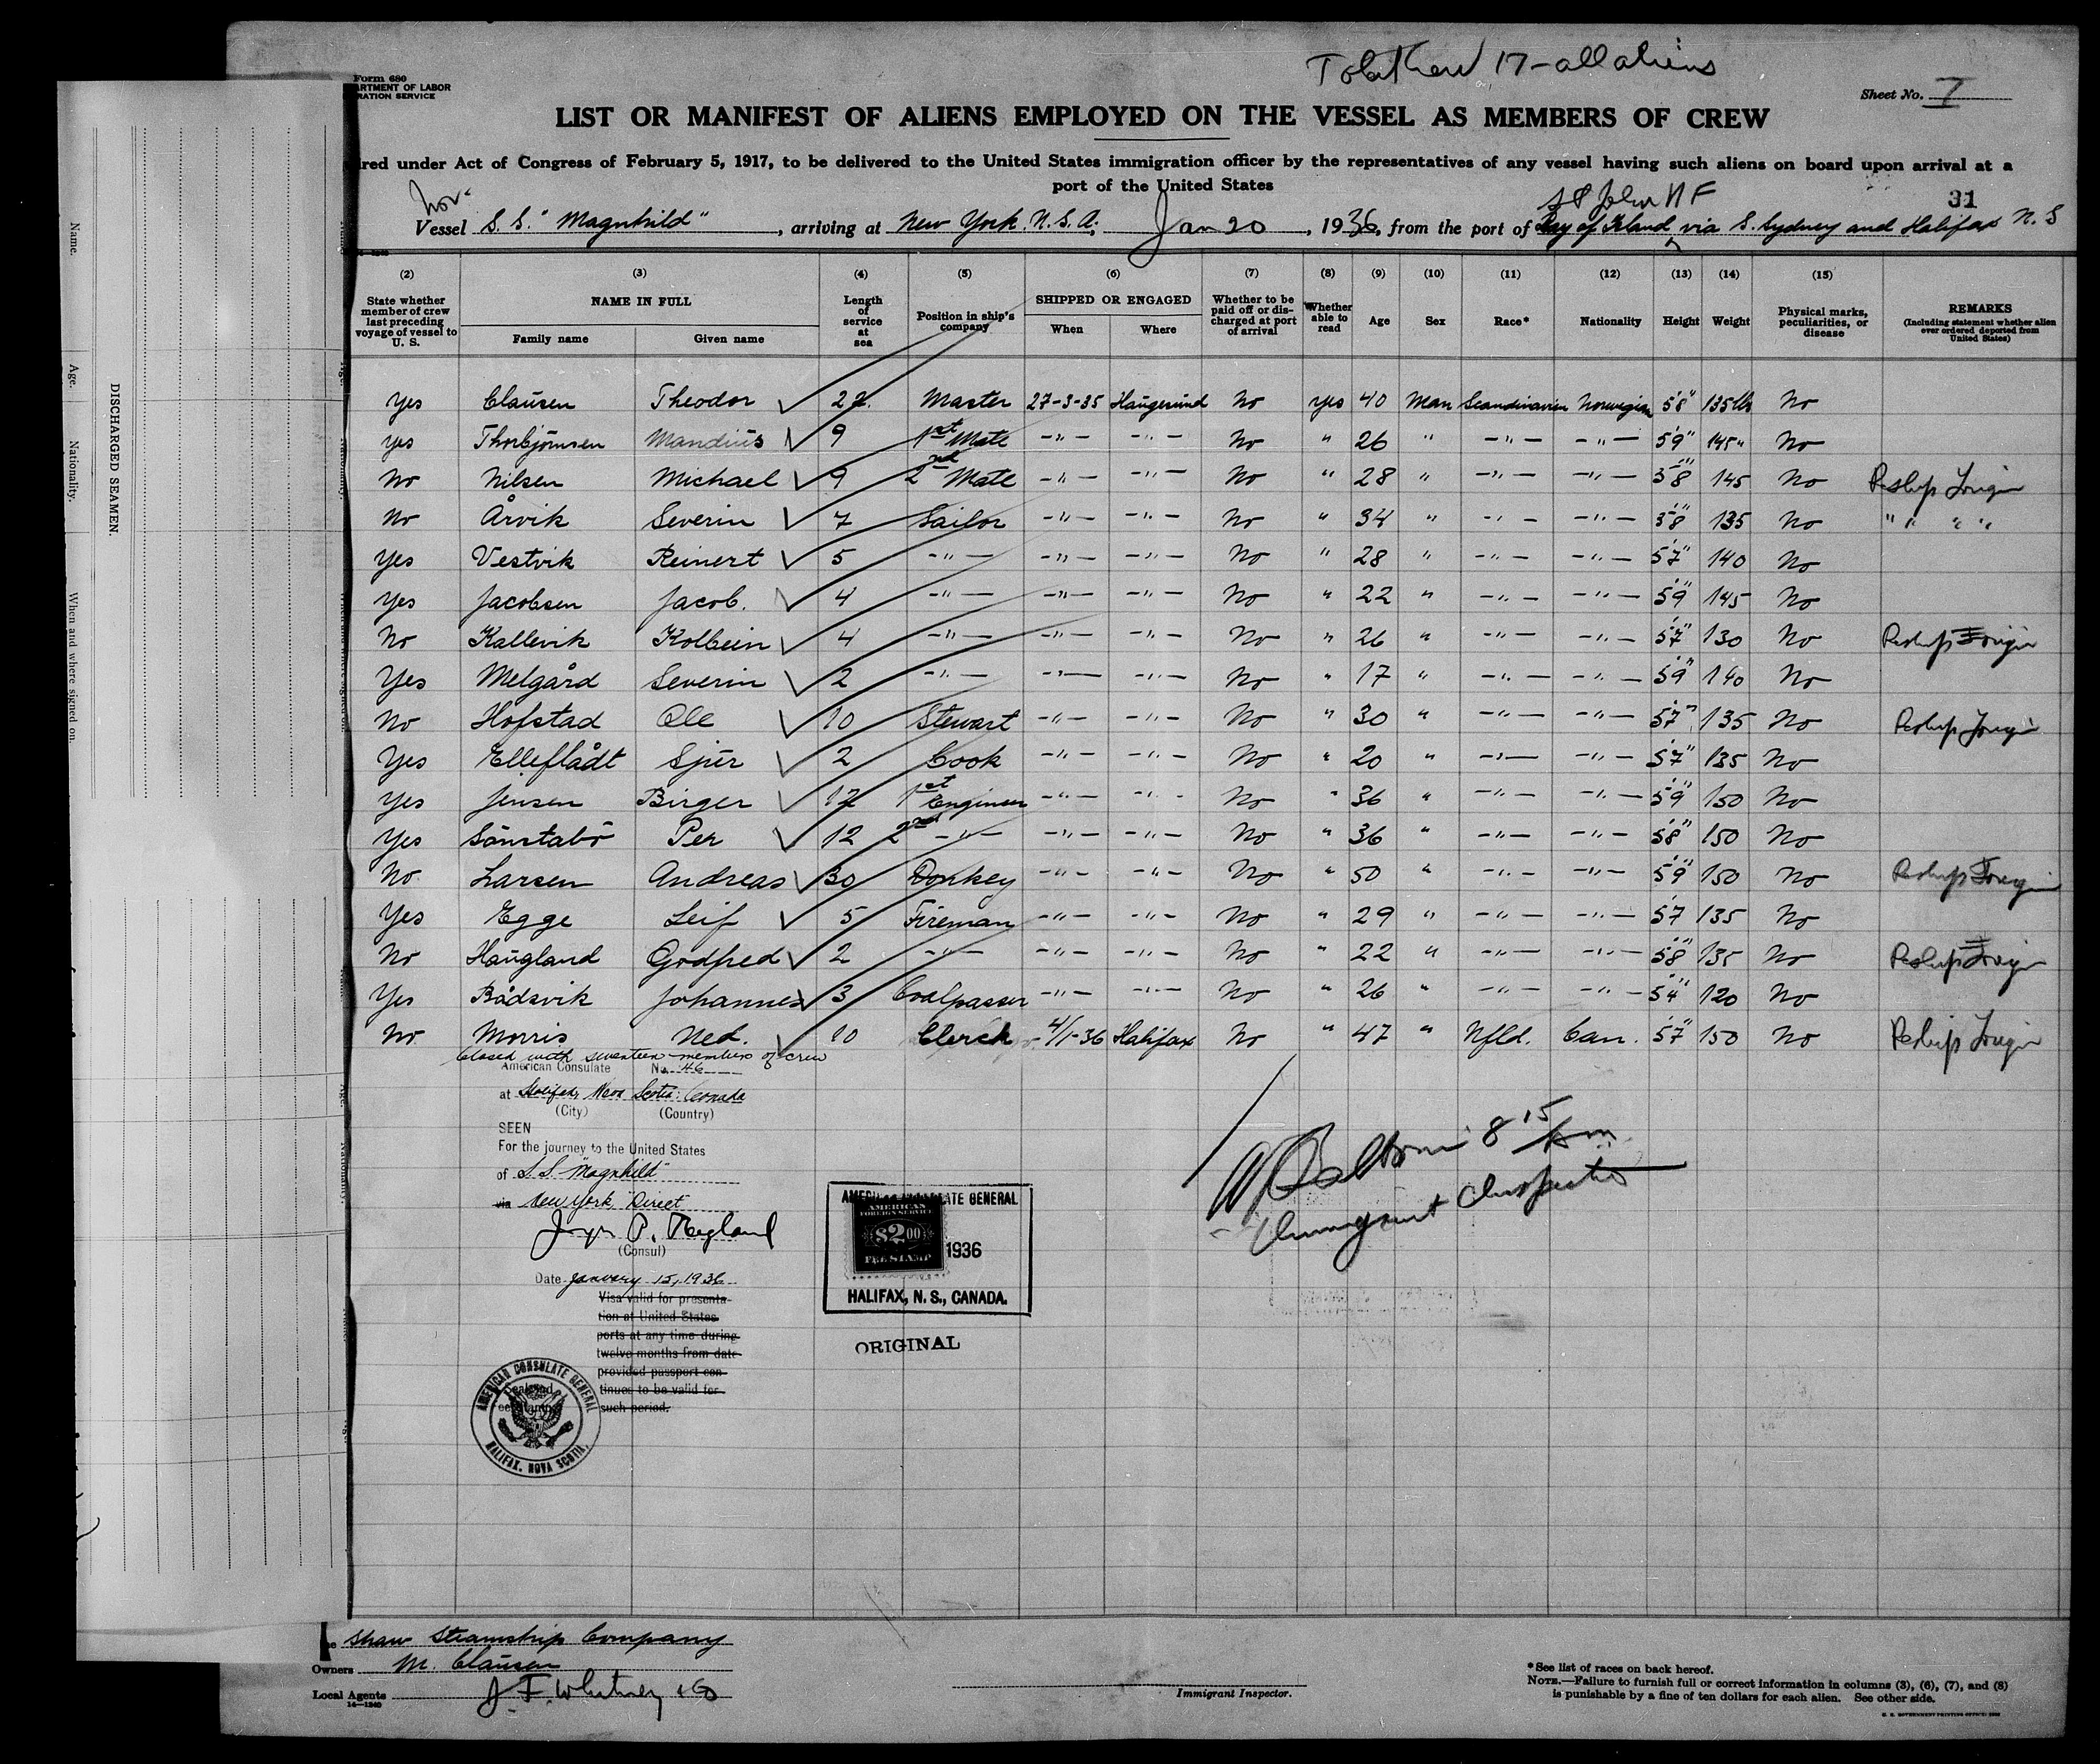 Form 680
ARTMENT OF LABOR
RATION SERVICE
Total Crew 17 - all aliens
Sheet No. 1
LIST OR MANIFEST OF ALIENS EMPLOYED ON THE VESSEL AS MEMBERS OF CREW
ired under Act of Congress of February 5, 1917, to be delivered to the United States immigration officer by the representatives of any vessel having such aliens on board upon arrival at a
port of the United States
Nor.
St John N F
31
Vessel S.S. "Magnhild", arriving at New York. N.S.A; Jan 20, 1936, from the port of Bay of Island via S. Sydney and Halifax N. S
(2) (3) (4) (5) (6) (7) (8) (9) (10) (11) (12) (13) (14) (15)
State whether member of crew last preceding voyage of vessel to U. S.
NAME IN FULL
Family name Given name
Length of service at sea
Position in ship's company
SHIPPED OR ENGAGED
When Where
Whether to be paid off or discharged at port of arrival
Whether able to read
Age
Sex
Race*
Nationality
Height
Weight
Physical marks, peculiarities, or disease
REMARKS
(Including statement whether alien ever ordered deported from United States)
Yes Claüsen Theodor 22. Master 27-3-35 Haugesund No yes 40 Man Scandinavien Norwegian 5'8" 135 lbs No
yes Thorbjørnsen Mandiüs 9 1st Mate -"- -"- No " 26 " -"- -"- 5'9" 145 " No
No Nilsen Michael 9 2nd Mate -"- -"- No " 28 " -"- -"- 5'8" 145 No Reship Foreign
No Årvik Severin 7 Sailor -"- -"- No " 34 " -"- -"- 5'8" 135 No " " " "
Yes Vestvik Reinert 5 -"- -"- -"- No " 28 " -"- -"- 5'7" 140 No
Yes Jacobsen Jacob. 4 -"- -"- -"- No " 22 " -"- -"- 5'9" 145 No
No Kallevik Kolbein 4 -"- -"- -"- No " 26 " -"- -"- 5'7" 130 No Reship Foreign
Yes Melgård Severin 2 -"- -"- -"- No " 17 " -"- -"- 5'9" 140 No
No Hofstad Ole 10 Stewart -"- -"- No " 30 " -"- -"- 5'7" 135 No Reship Foreign
Yes Elleflådt Sjür 2 Cook -"- -"- No " 20 " -"- -"- 5'7" 135 No
Yes Jensen Birger 17 1st Engineer -"- -"- No " 36 " -"- -"- 5'9" 150 No
Yes Sönstabö Per 12 2nd -"- -"- -"- No " 36 " -"- -"- 5'8" 150 No
No. Larsen Andreas 30 Donkey -"- -"- No " 50 " -"- -"- 5'9" 150 No Reship Foreign
Yes Egge Leif 5 Fireman -"- -"- No " 29 " -"- -"- 5'7 135 No
No Haügland Godfred 2 -"- -"- -"- No " 22 " -"- -"- 5'8" 135 No Reship Foreign
Yes Bådsvik Johannes 3 Coalpasser -"- -"- No " 26 " -"- -"- 5'4" 120 No
No Morris Ned. 10 Clerck 4/1-36 Halifax No " 47 " Nfld. Can. 5'7" 150 No Reship Foreign
Closed with seventeen members of crew
American Consulate No. 46
at Halifax, Nova Scotia: Canada
(City) (Country)
SEEN
For the journey to the United States
of S.S. "Magnhild"
via New York Direct
(Consul)
Date January 15, 1936
Visa valid for presenta-
tion at United States
ports at any time during
twelve months from date
provided passport con-
tinues to be valid for
such period.
AMERICAN CONSULATE GENERAL
HALIFAX, NOVA SCOTIA.
AMERICAN CONSULATE GENERAL
AMERICAN
FOREIGN SERVICE
$2.00
FEE STAMP
1936
HALIFAX, N. S., CANADA.
ORIGINAL
8 15 am
Immigrant Inspector
Shaw Steamship Company
Owners M. Claüsen
Local Agents J. F. Whitney & Co
14—1240
Immigrant Inspector.
*See list of races on back hereof.
NOTE.—Failure to furnish full or correct information in columns (3), (6), (7), and (8)
is punishable by a fine of ten dollars for each alien. See other side.
U. S. GOVERNMENT PRINTING OFFICE:
DISCHARGED SEAMEN.
Name.
Age.
Nationality.
When and where signed on.